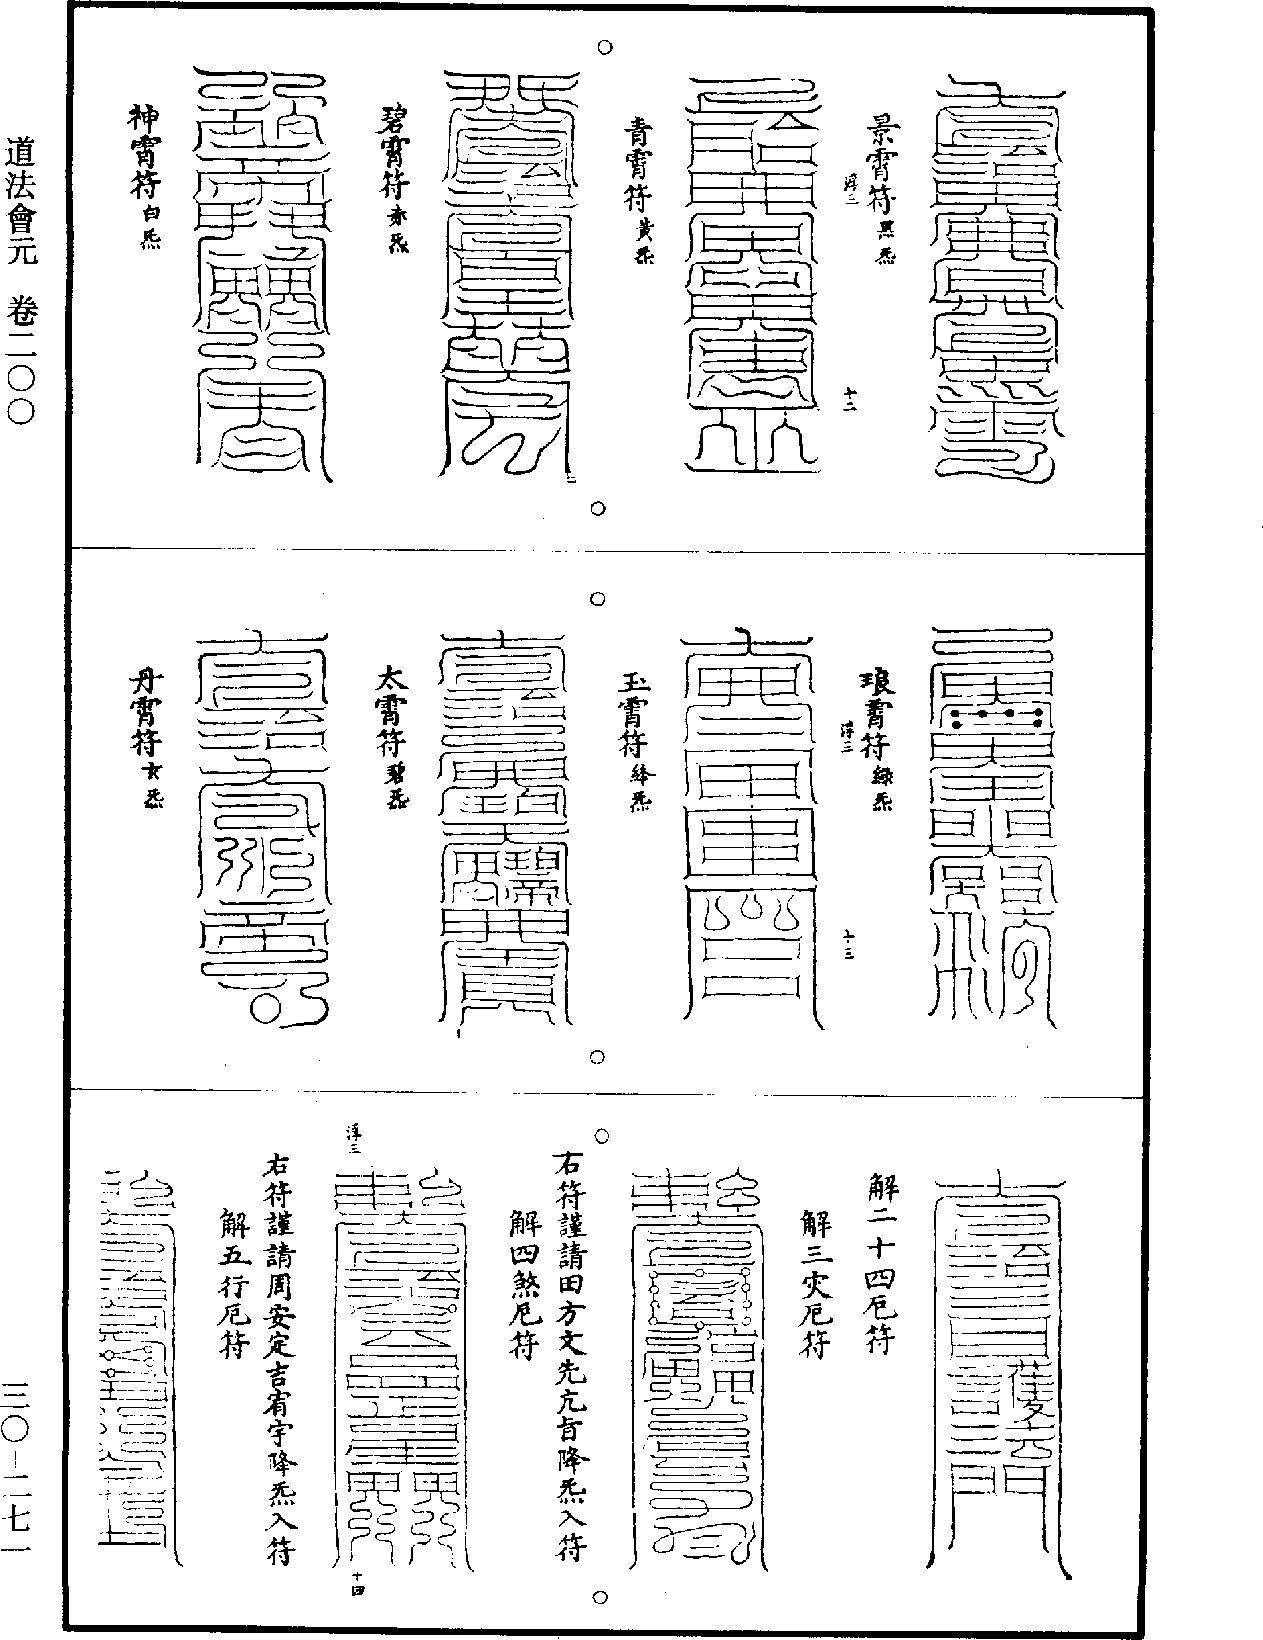 景霄符黑炁
浮三
十二
青霄符黃炁
碧霄符赤炁
神霄符白炁
琅霄符綠炁
浮三
十三
玉霄符絳炁
太霄符碧炁
丹霄符玄炁
解二十四厄符
解三灾厄符
右符謹請田方文先亢旨降炁入符
解四煞厄符
浮三
十四
右符謹請周安定吉宥宇降炁入符
解五行厄符
道法會元 卷二〇〇
三〇—二七一